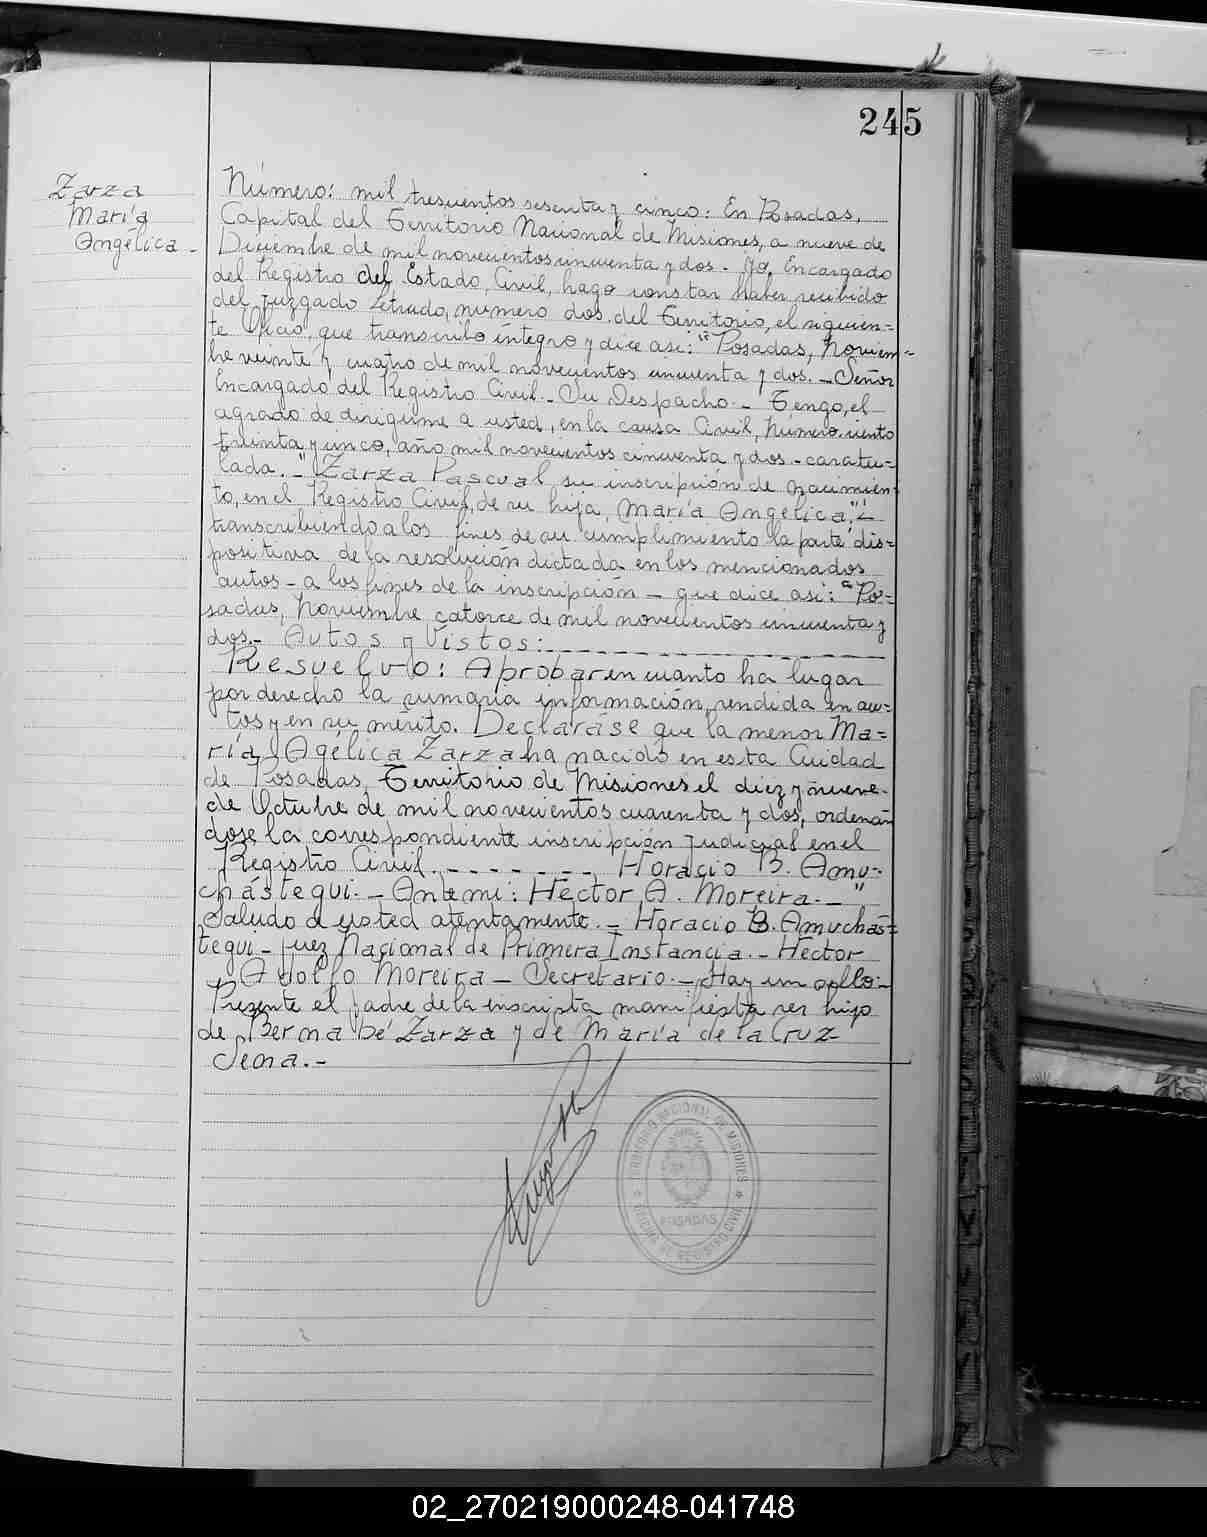 245
Zarza
María
Angélica-
Número: mil trescientos sesenta y cinco: En Posadas,
Capital del Territorio Nacional de Misiones, a nueve de
Diciembre de mil novecientos cincuenta y dos. Yo, Encargado
del Registro del Estado, Civil, hago constar haber recibido
del Juzgado Letrado, número dos, del Territorio, el siguien=
te Oficio, que transcribo íntegro y dice así: "Posadas, Noviem=
bre veinte y cuatro de mil novecientos cincuenta y dos. - Señor
Encargado del Registro Civil - Su Despacho. - Tengo, el
agrado de dirigirme a usted, en la causa Civil, Número ciento
treinta y cinco, año mil novecientos cincuenta y dos - caratu=
lada. - "Zarza Pascual su inscripción de nacimien=
to, en el Registro Civil, de su hija, María Angélica",-
transcribiendo a los fines de su cumplimiento la parte dis=
positiva de la resolución dictada en los mencionados
autos - a los fines de la inscripción - que dice así: "Po=
sadas, Noviembre catorce de mil novecientos cincuenta y
dos. - Autos y Vistos:
Resuelvo: Aprobar en cuanto ha lugar
por derecho la sumaria información, rendida en au=
tos y en su mérito. Declaráse que la menor Ma=
ría, Agélica Zarza ha nacido en esta Ciudad
de Posadas, Territorio de Misiones el diez y nueve-
de Octubre de mil novecientos cuarenta y dos, ordenan
dose la correspondiente inscripción Judicial en el
Registro Civil. - - - - - - - Horacio B. Amu-
chástegui. - Ante mi: Héctor A. Moreira. - "
Saludo a usted atentamente. - Horacio B. Amuchás=
tegui - Juez Nacional de Primera Instancia. - Héctor
Adolfo Moreira - Secretario. - Hay un sello-
Presente el padre de la inscripta manifiesta ser hijo
de Berna Bé Zarza y de María de la Cruz
Sena. -
TERRITORIO NACIONAL DE MISIONES
POSADAS
OFICINA DE REGISTRO CIVIL
02_270219000248-041748